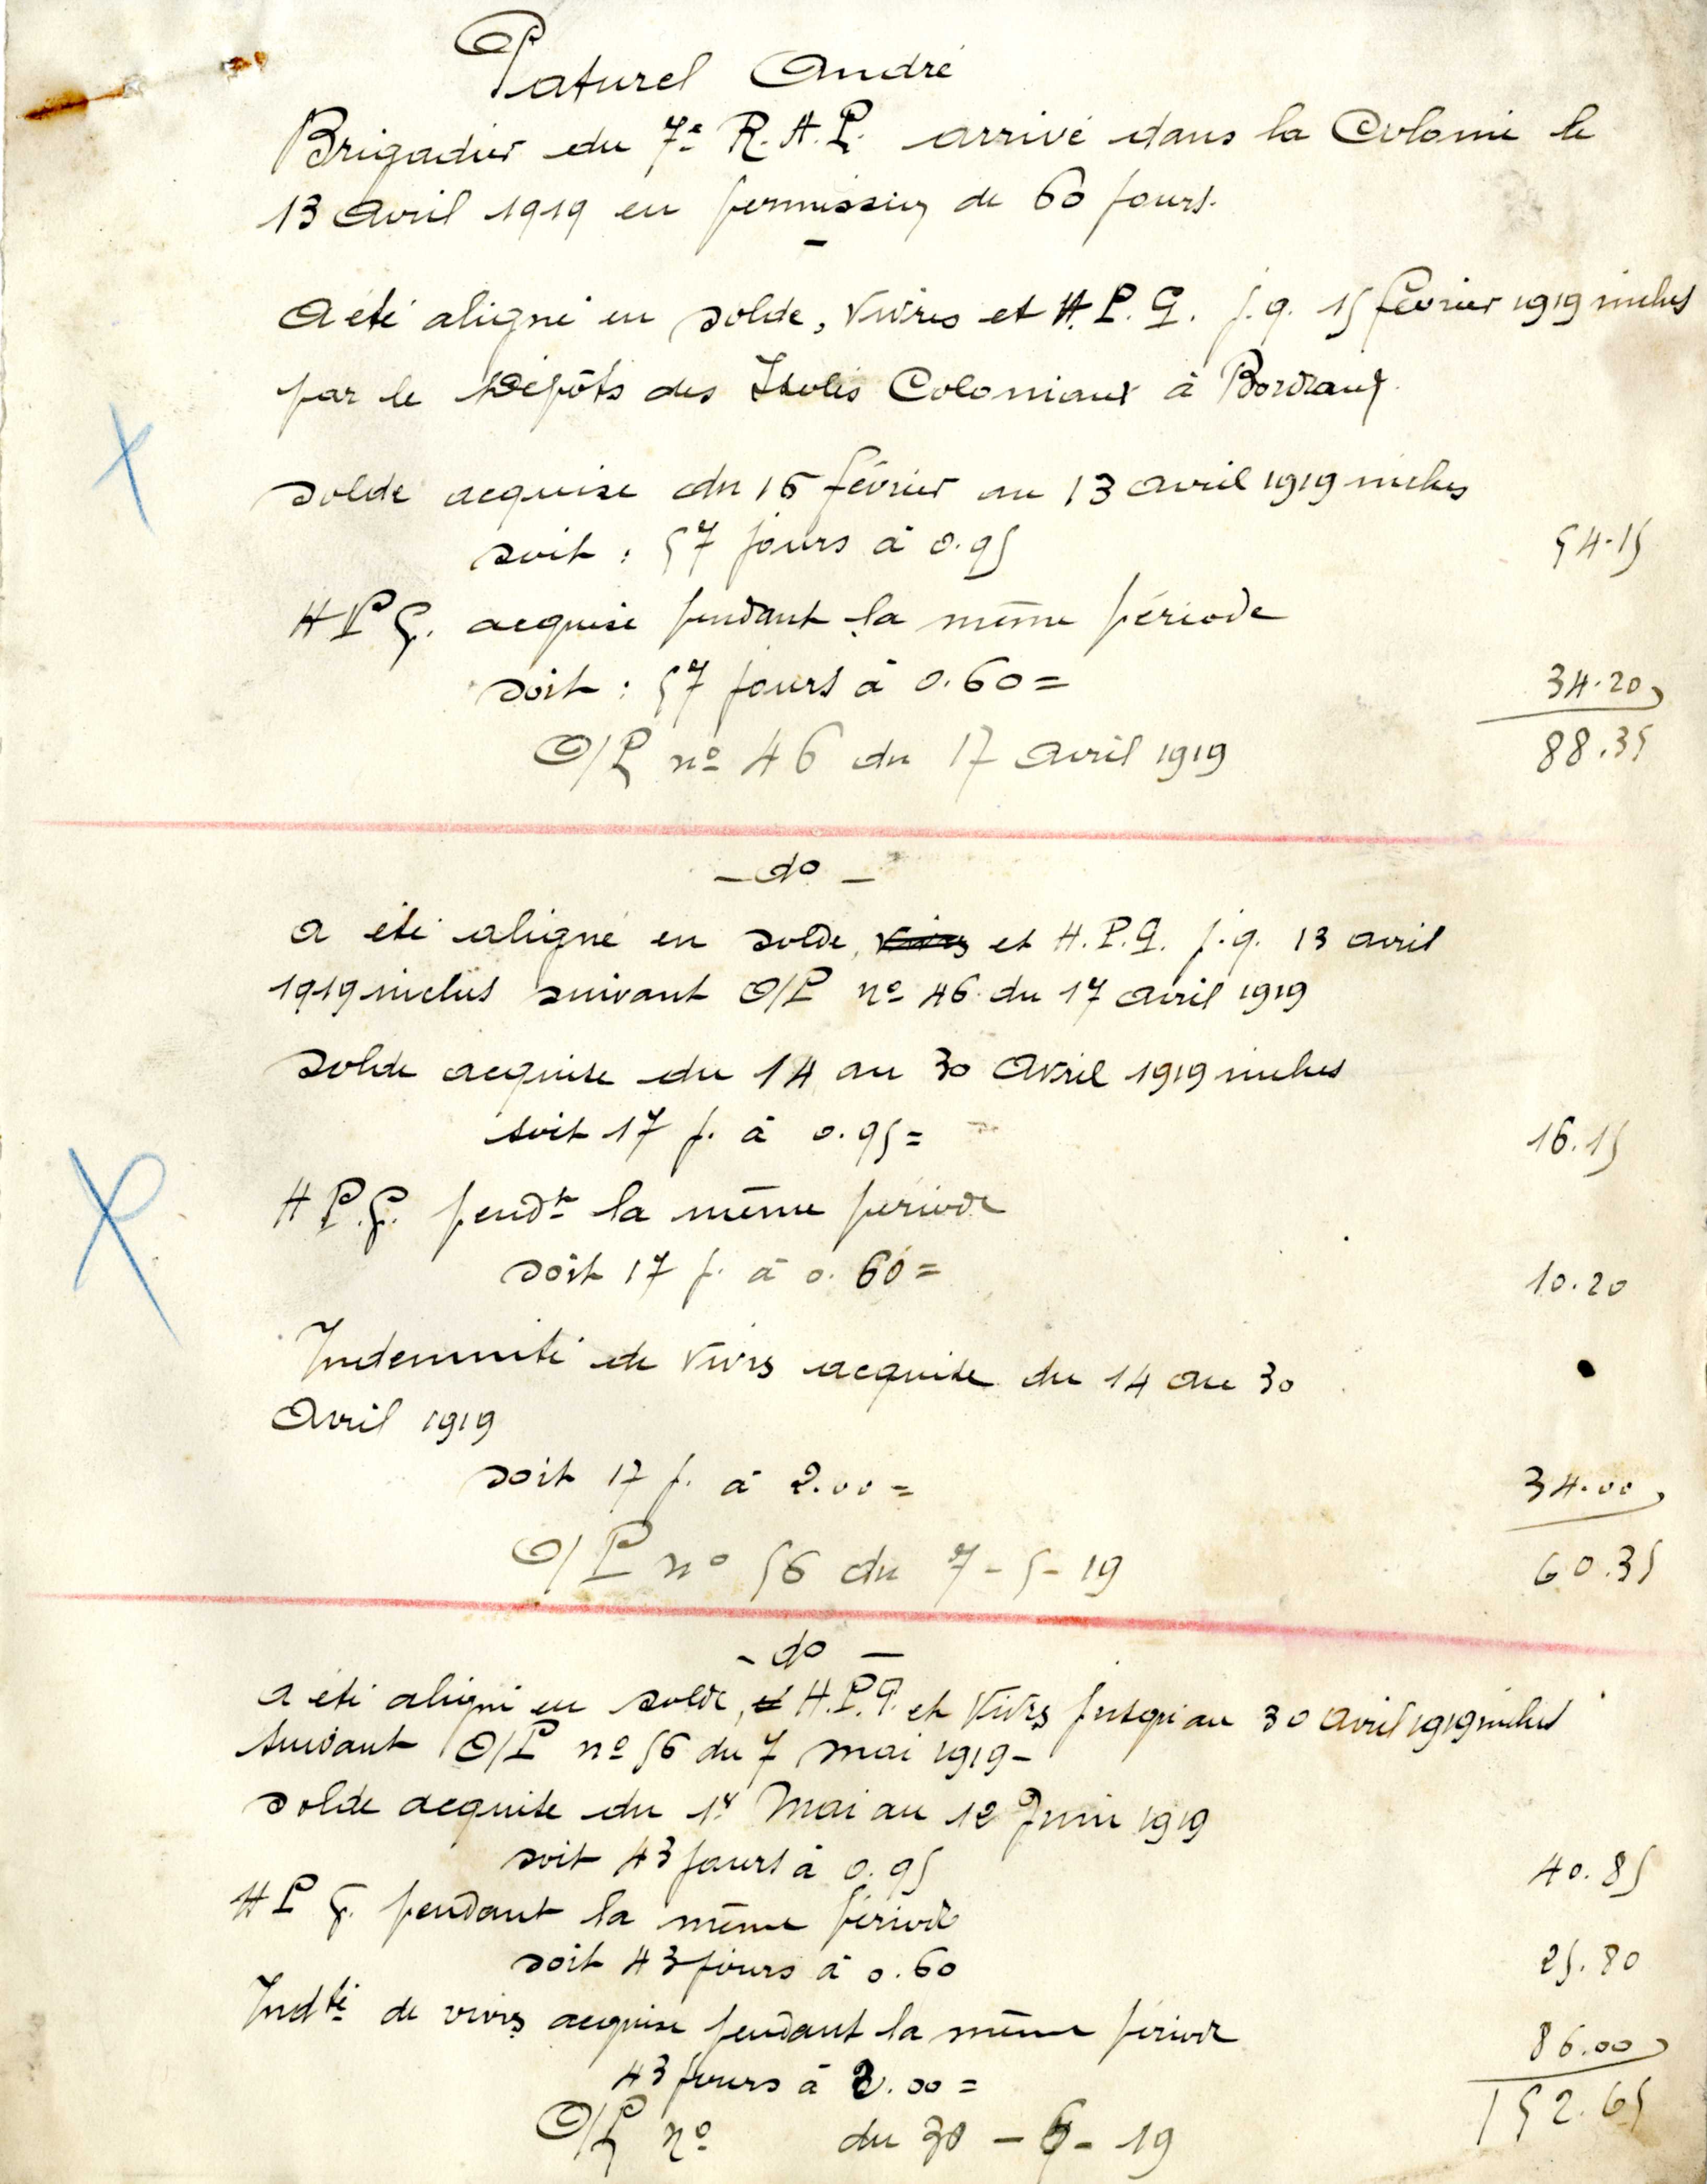 Paturel André
Brigadier du 7e R.A.P. arrivé dans la Colonie le
13 Avril 1919 en permission de 60 jours.
A été aligné en solde, vivres et H.P.G. j.q. 15 février 1919 inclus
par le Dépôts des Isolés Coloniaux à Bordeaux.
Solde acquise du 16 février au 13 avril 1919 inclus
soit : 57 jours à 0.95 54.15
H P G. acquise pendant la même période
soit : 57 jours à 0.60 = 34.20
O/P no 46 du 17 Avril 1919 88.35
- do -
a été aligné en solde, vivres et H.P.G. j.q. 13 avril
1919 inclus suivant O/P no 46 du 17 Avril 1919
Solde acquise du 14 au 30 Avril 1919 inclus
soit 17 j. à 0.95 = 16.15
H P.G. pendt la même période
soit 17 j. à 0.60 = 10.20
Indemnité de vivres acquise du 14 au 30
Avril 1919
soit 17 j. à 2.00 = 34.00
O/P no 56 du 7-5-19 60.35
- do -
a été aligné en solde, et H.P.G. et vivres jusqu'au 30 Avril 1919 inclus
suivant O/P no 56 du 7 mai 1919 -
Solde acquise du 1er Mai au 12 Juin 1919
soit 43 jours à 0.95 40.85
H P G. pendant la même période
soit 43 jours à 0.60 25.80
Indté de vivres acquise pendant la même période
43 jours à 2.00 = 86.00
O/P no du 30-6-19 152.65